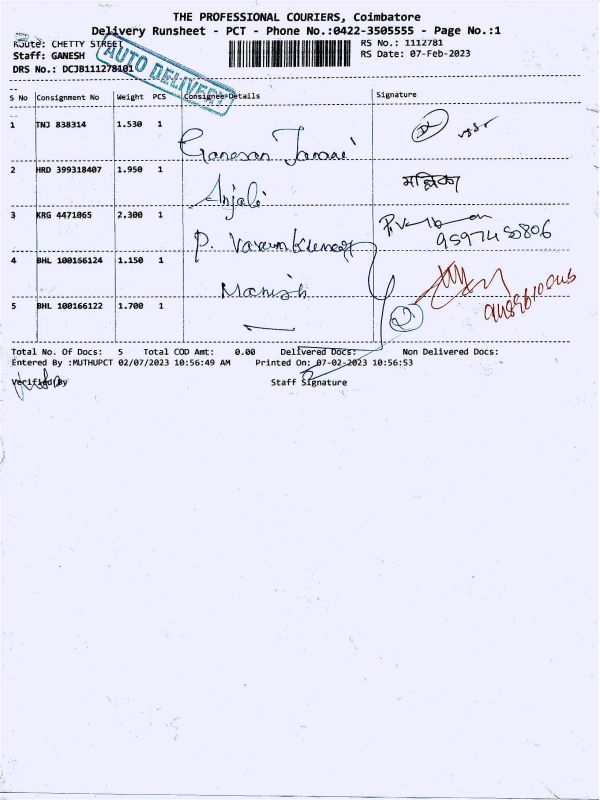 THE PROFESSIONAL COURIERS, Coimbatore
Delivery Runsheet - PCT - Phone No.:0422-3505555 - Page No.:1
Route: CHETTY STREET
RS No.: 1112781
Staff: GANESH
RS Date: 07-Feb-2023
DRS No.: DCJB111278101
AUTO DELIVERY
S No Consignment No Weight PCS Consignee Details Signature
1 TNJ 838314 1.530 1
Ganesan Janani
2 HRD 399318407 1.950 1 मल्लिका
Anjali
3 KRG 4471065 2.300 1
P. Varunkumar
4 BHL 100166124 1.150 1
Manish
5 BHL 100166122 1.700 1
Total No. Of Docs: 5 Total COD Amt: 0.00 Delivered Docs: Non Delivered Docs:
Entered By :MUTHUPCT 02/07/2023 10:56:49 AM Printed On: 07-02-2023 10:56:53
Verified By Staff Signature